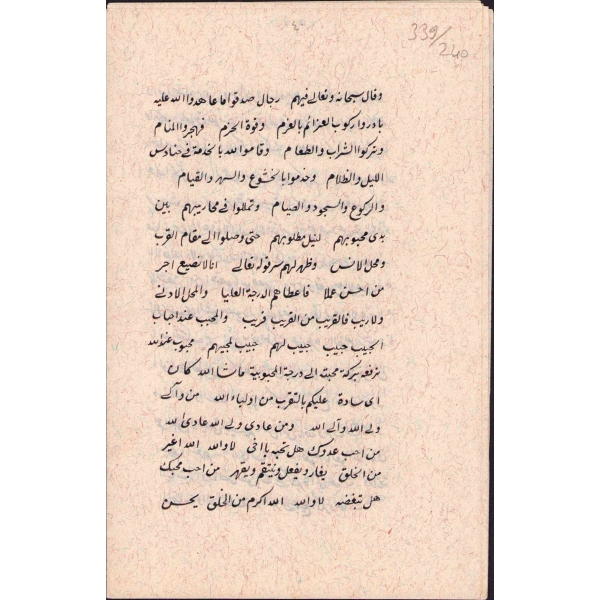 ٤
339/240
وقال سبحانه وتعالى فيهم رجال صدقوا ما عاهدوا الله عليه
بادروا ركوب العزائم بالعزم وقوة الحزم فهجروا المنام
وتركوا الشراب والطعام وقاموا لله بالخدمة في حنادس
الليل والظلام وخدموا بالخشوع والسهر والقيام
والركوع والسجود والصيام وتململوا في محاريبهم بين
يدى محبوبهم لنيل مطلوبهم حتى وصلوا الى مقام القرب
ومحل الانس وظهر لهم سر قوله تعالى انا لا نضيع اجر
من احسن عملا فاعطاهم الدرجة العليا والمحل الادنى
ولا ريب فالقريب من القريب قريب والمحب عند احباب
الحبيب حبيب حبيب لهم حبيب لمحبهم محبوب عند الله
ترفعه بركة محبته الى درجة المحبوبية ما شا الله كان
اى سادة عليكم بالتقرب من اولياء الله من وآلى
ولى الله وآلى الله ومن عادى ولى الله عادى الله
من احب عدوك هل تحبه يا اخى لا والله الله اغير
من الخلق يغار ويفعل وينتقم ويقهر من احب محبك
هل تبغضه لا والله الله اكرم من الخلق يحسن